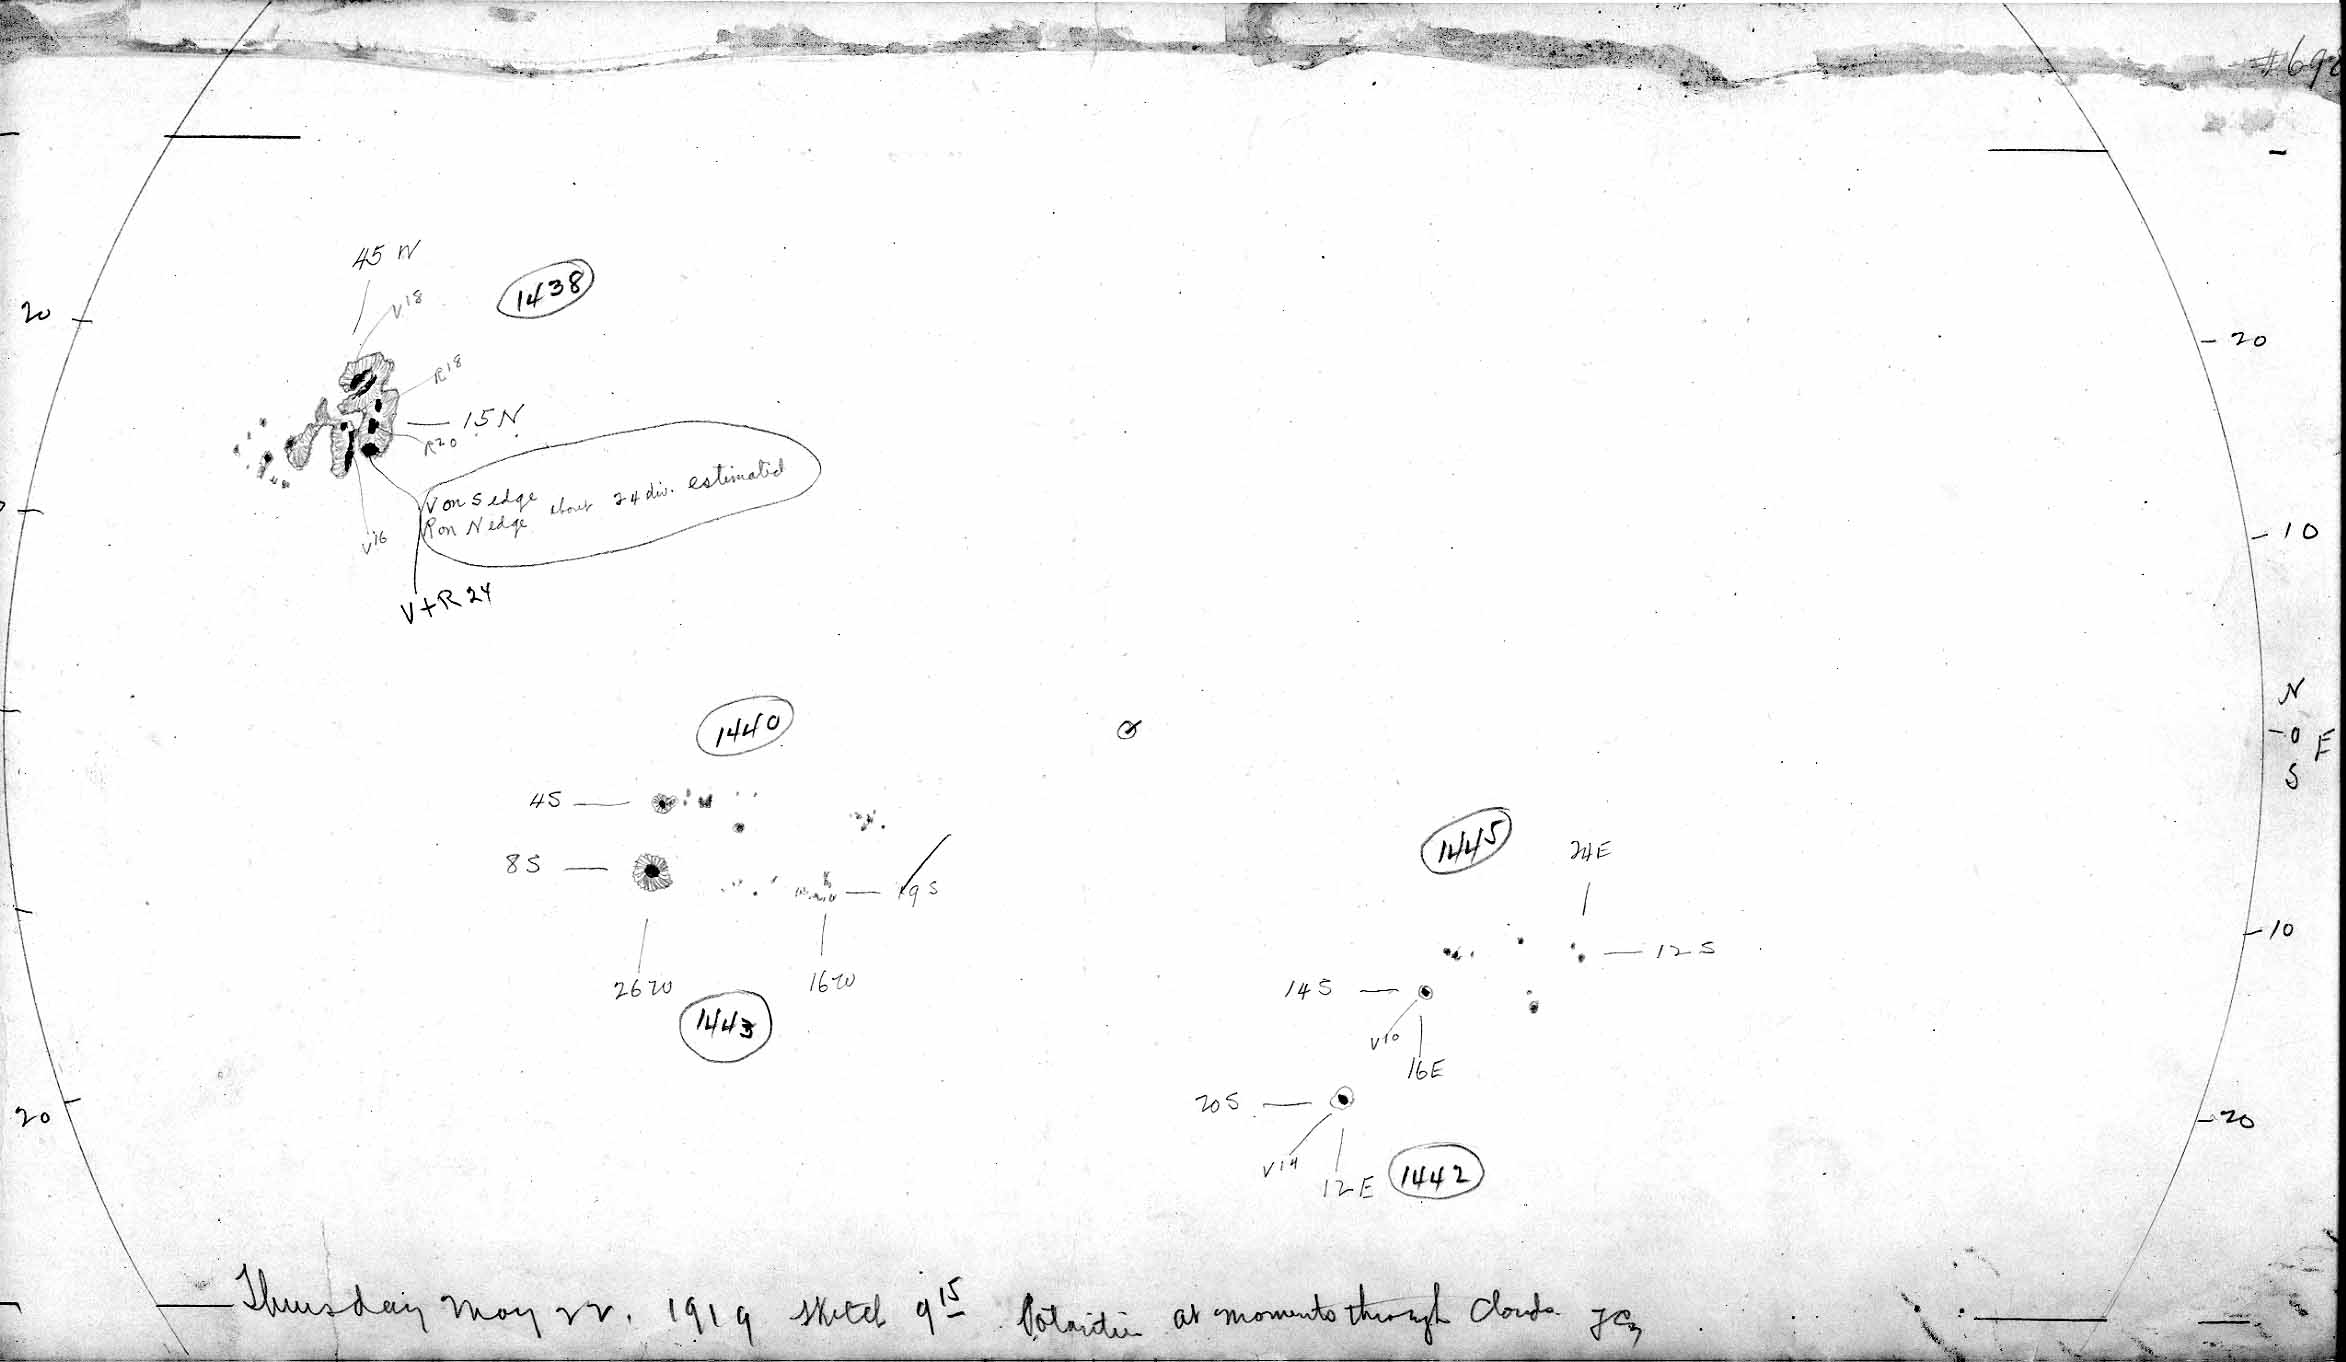 #698
45 W
1438
V18
20
20
R18
15 N
R20
V on S edge
R on N edge about 24 div. estimated
10
V16
V+R 24
N
1440
0 E
S
4S
1445
24E
8S
19S
10
12S
26W
16W
14S
1443
V10
16E
20S
20
20
V14
12E
1442
Thursday May 22. 1919 sketch 9 15 Polarities at moments through clouds.